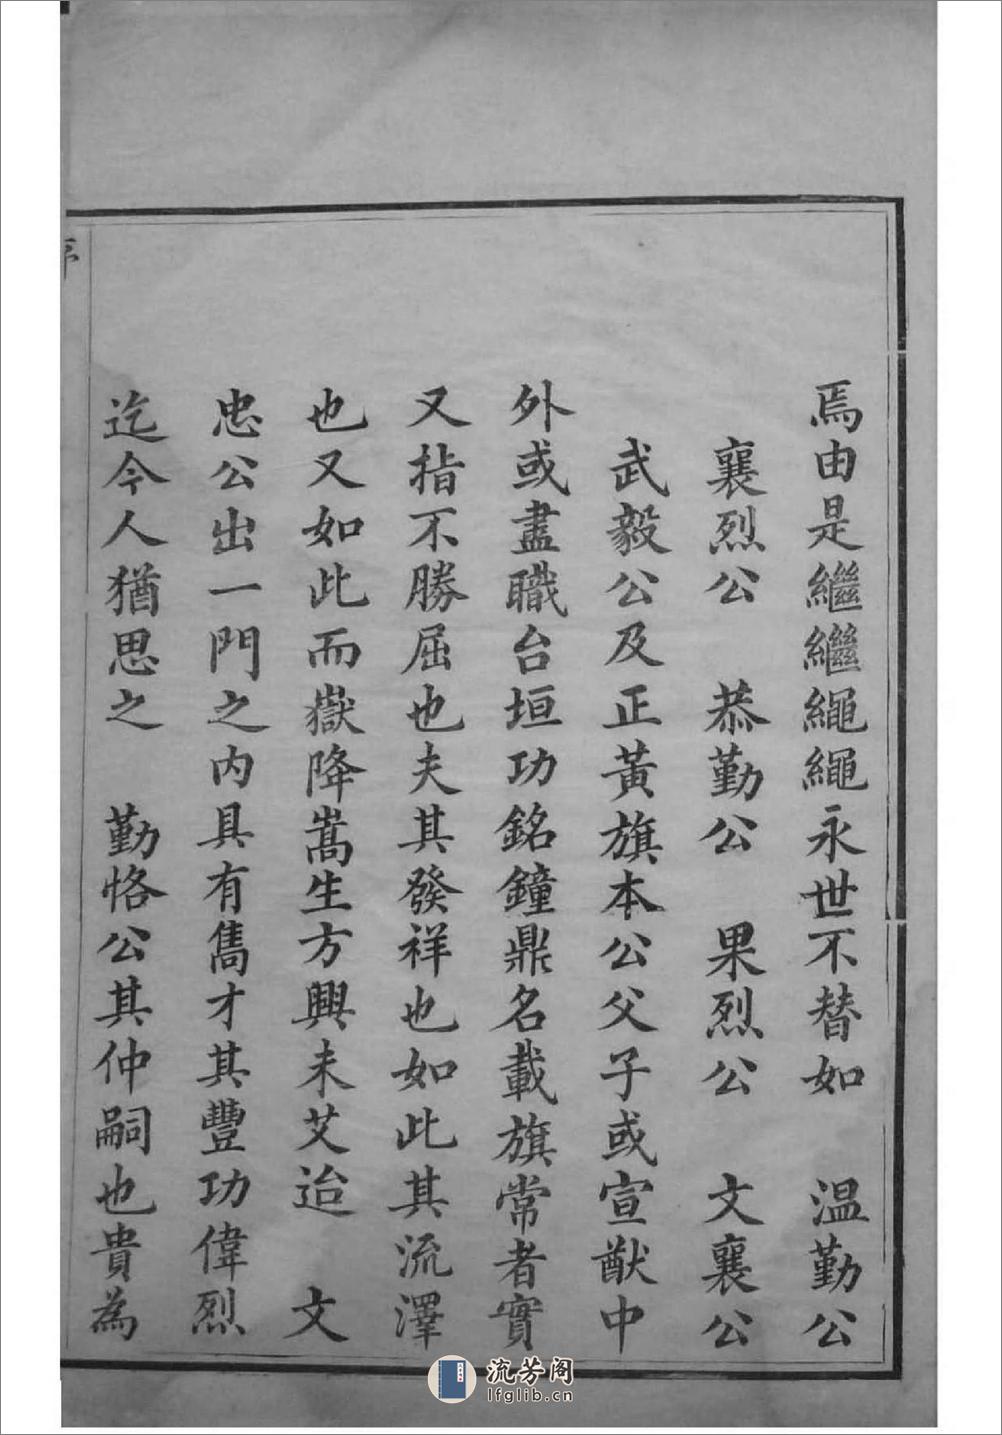 焉由是繼繼繩繩永世不替如　溫勤公
襄烈公　恭勤公　果烈公　文襄公
武毅公及正黃旗本公父子或宣猷中
外或盡職台垣功銘鐘鼎名載旗常者實
又指不勝屈也夫其發祥也如此其流澤
也又如此而嶽降嵩生方興未艾迨　文
忠公出一門之內具有雋才其豐功偉烈
迄今人猶思之　勤恪公其仲嗣也貴為
序
流芳阁
lfglib.cn